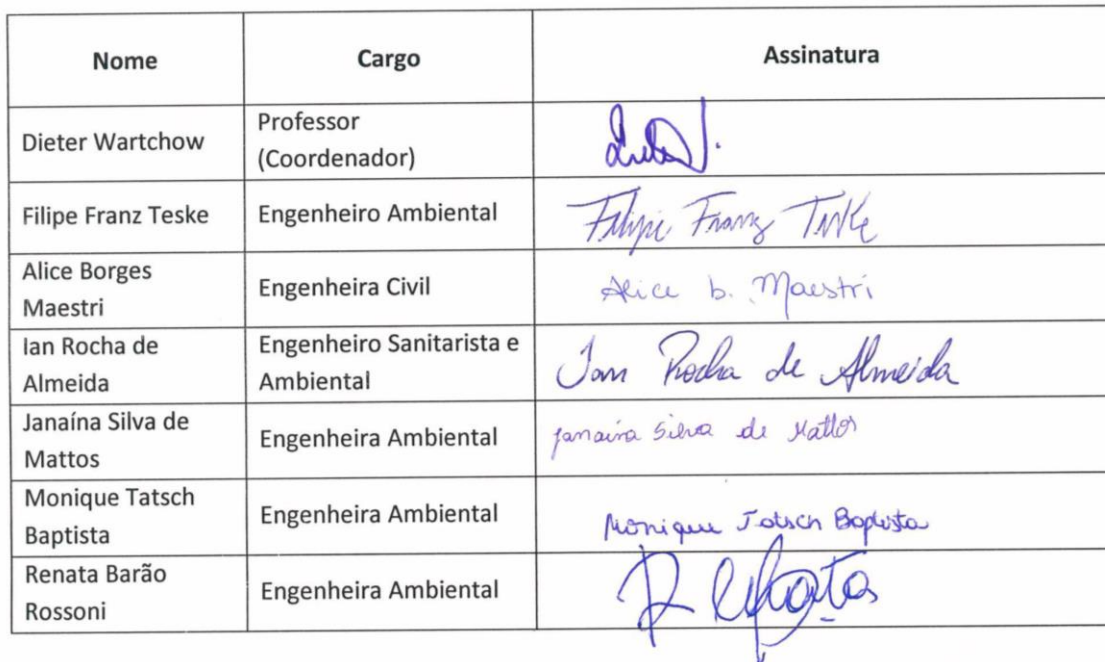 Nome Cargo Assinatura
Dieter Wartchow
Professor
(Coordenador)
Filipe Franz Teske Engenheiro Ambiental Filipe Franz Teske
Alice Borges
Maestri
Engenheira Civil Alice b. Maestri
Ian Rocha de
Almeida
Engenheiro Sanitarista e
Ambiental
Ian Rocha de Almeida
Janaína Silva de
Mattos
Engenheira Ambiental Janaína Silva de Mattos
Monique Tatsch
Baptista
Engenheira Ambiental Monique Tatsch Baptista
Renata Barão
Rossoni
Engenheira Ambiental